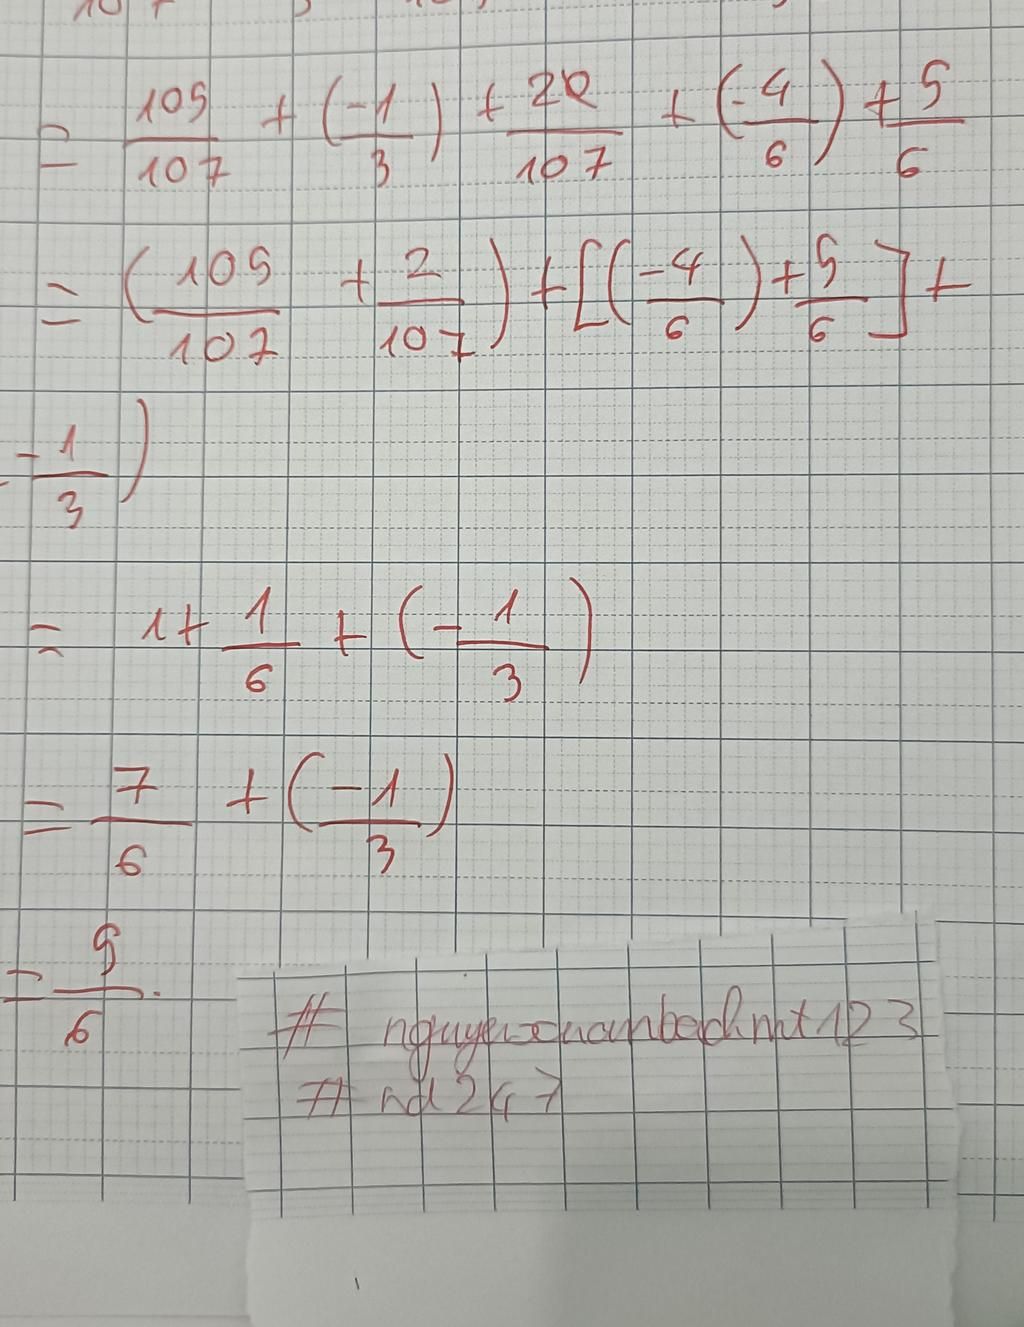 = 105/107 + (-1/3) + 2/107 + (-4/6) + 5/6
= (105/107 + 2/107) + [(-4/6) + 5/6] +
-1/3)
= 1 + 1/6 + (-1/3)
= 7/6 + (-1/3)
= 5/6.
# nguyenxuanbachmt123
# nd247